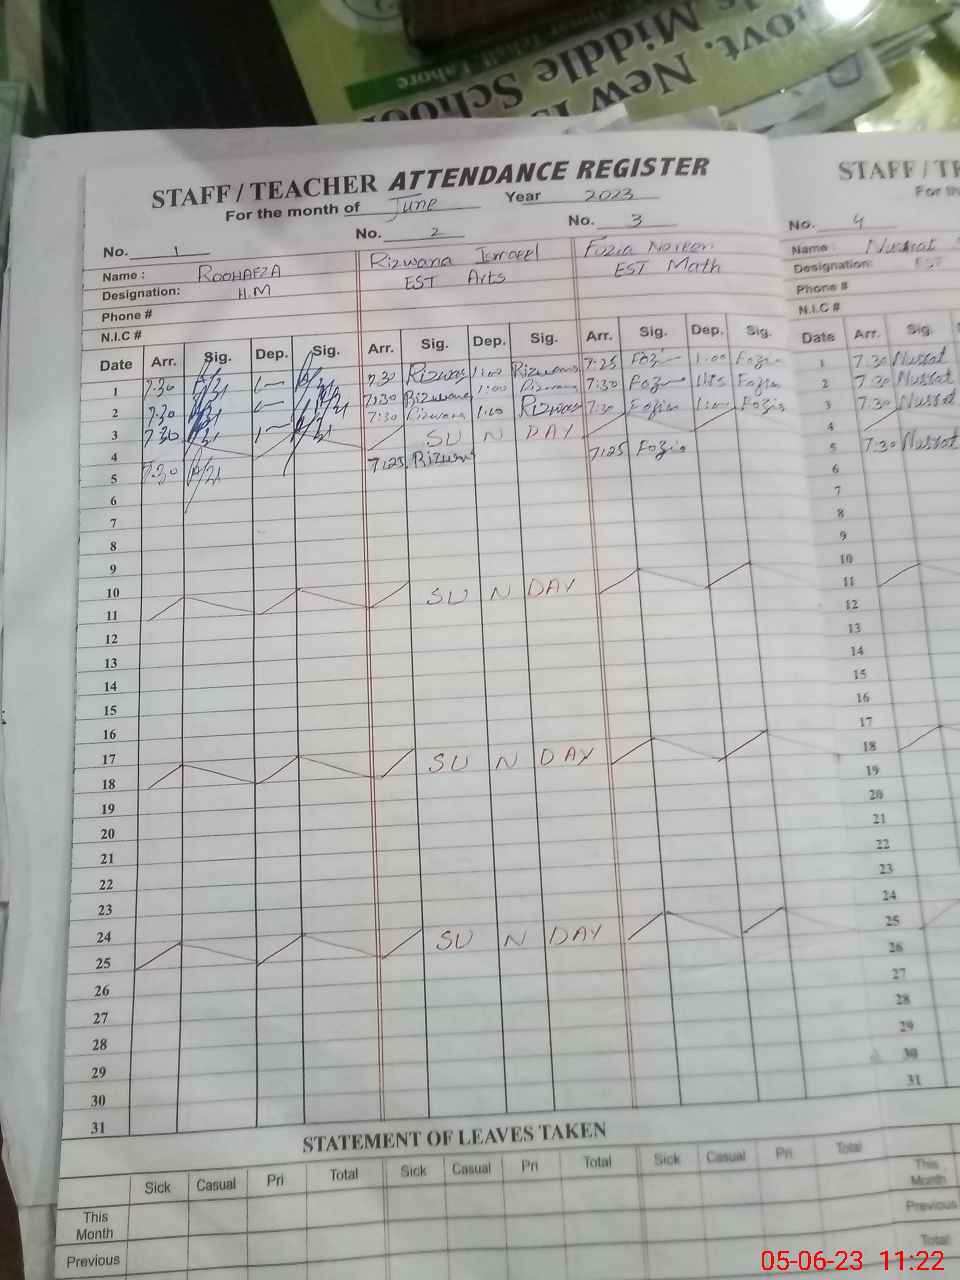 Govt. New Is
Middle School
Lahore
STAFF / TEACHER ATTENDANCE REGISTER
For the month of June Year 2023
No. 1 No. 2 No. 3
Name : ROOHAFZA Rizwana Ismael Fozia Noreen
Designation: H.M EST Arts EST Math
Phone #
N.I.C #
Date Arr. Sig. Dep. Sig. Arr. Sig. Dep. Sig. Arr. Sig. Dep. Sig.
1 7:30 7:30 Rizwana 1:00 Rizwana 7:25 Fozia 1:00 Fozia
2 7:30 7:30 Rizwana 1:00 Rizwana 7:30 Fozia Fozia
3 7:30 7:30 Rizwana 1:00 Rizwana 7:30 Fozia 1:00 Fozia
4 SUNDAY
5 7:30 7:25 Rizwana 7:25 Fozia
6
7
8
9
10
11 SUNDAY
12
13
14
15
16
17
18 SUNDAY
19
20
21
22
23
24
25 SUNDAY
26
27
28
29
30
31
STATEMENT OF LEAVES TAKEN
Sick Casual Pri Total Sick Casual Pri Total Sick Casual Pri Total
This Month
Previous
STAFF / TE
For th
No. 4
Name : Nusrat
Designation: EST
Phone #
N.I.C #
Date Arr. Sig.
1 7:30 Nusrat
2 7:30 Nusrat
3 7:30 Nusrat
4
5 7:30 Nusrat
6
7
8
9
10
11
12
13
14
15
16
17
18
19
20
21
22
23
24
25
26
27
28
29
30
31
This Month
Previous
Total
05-06-23 11:22